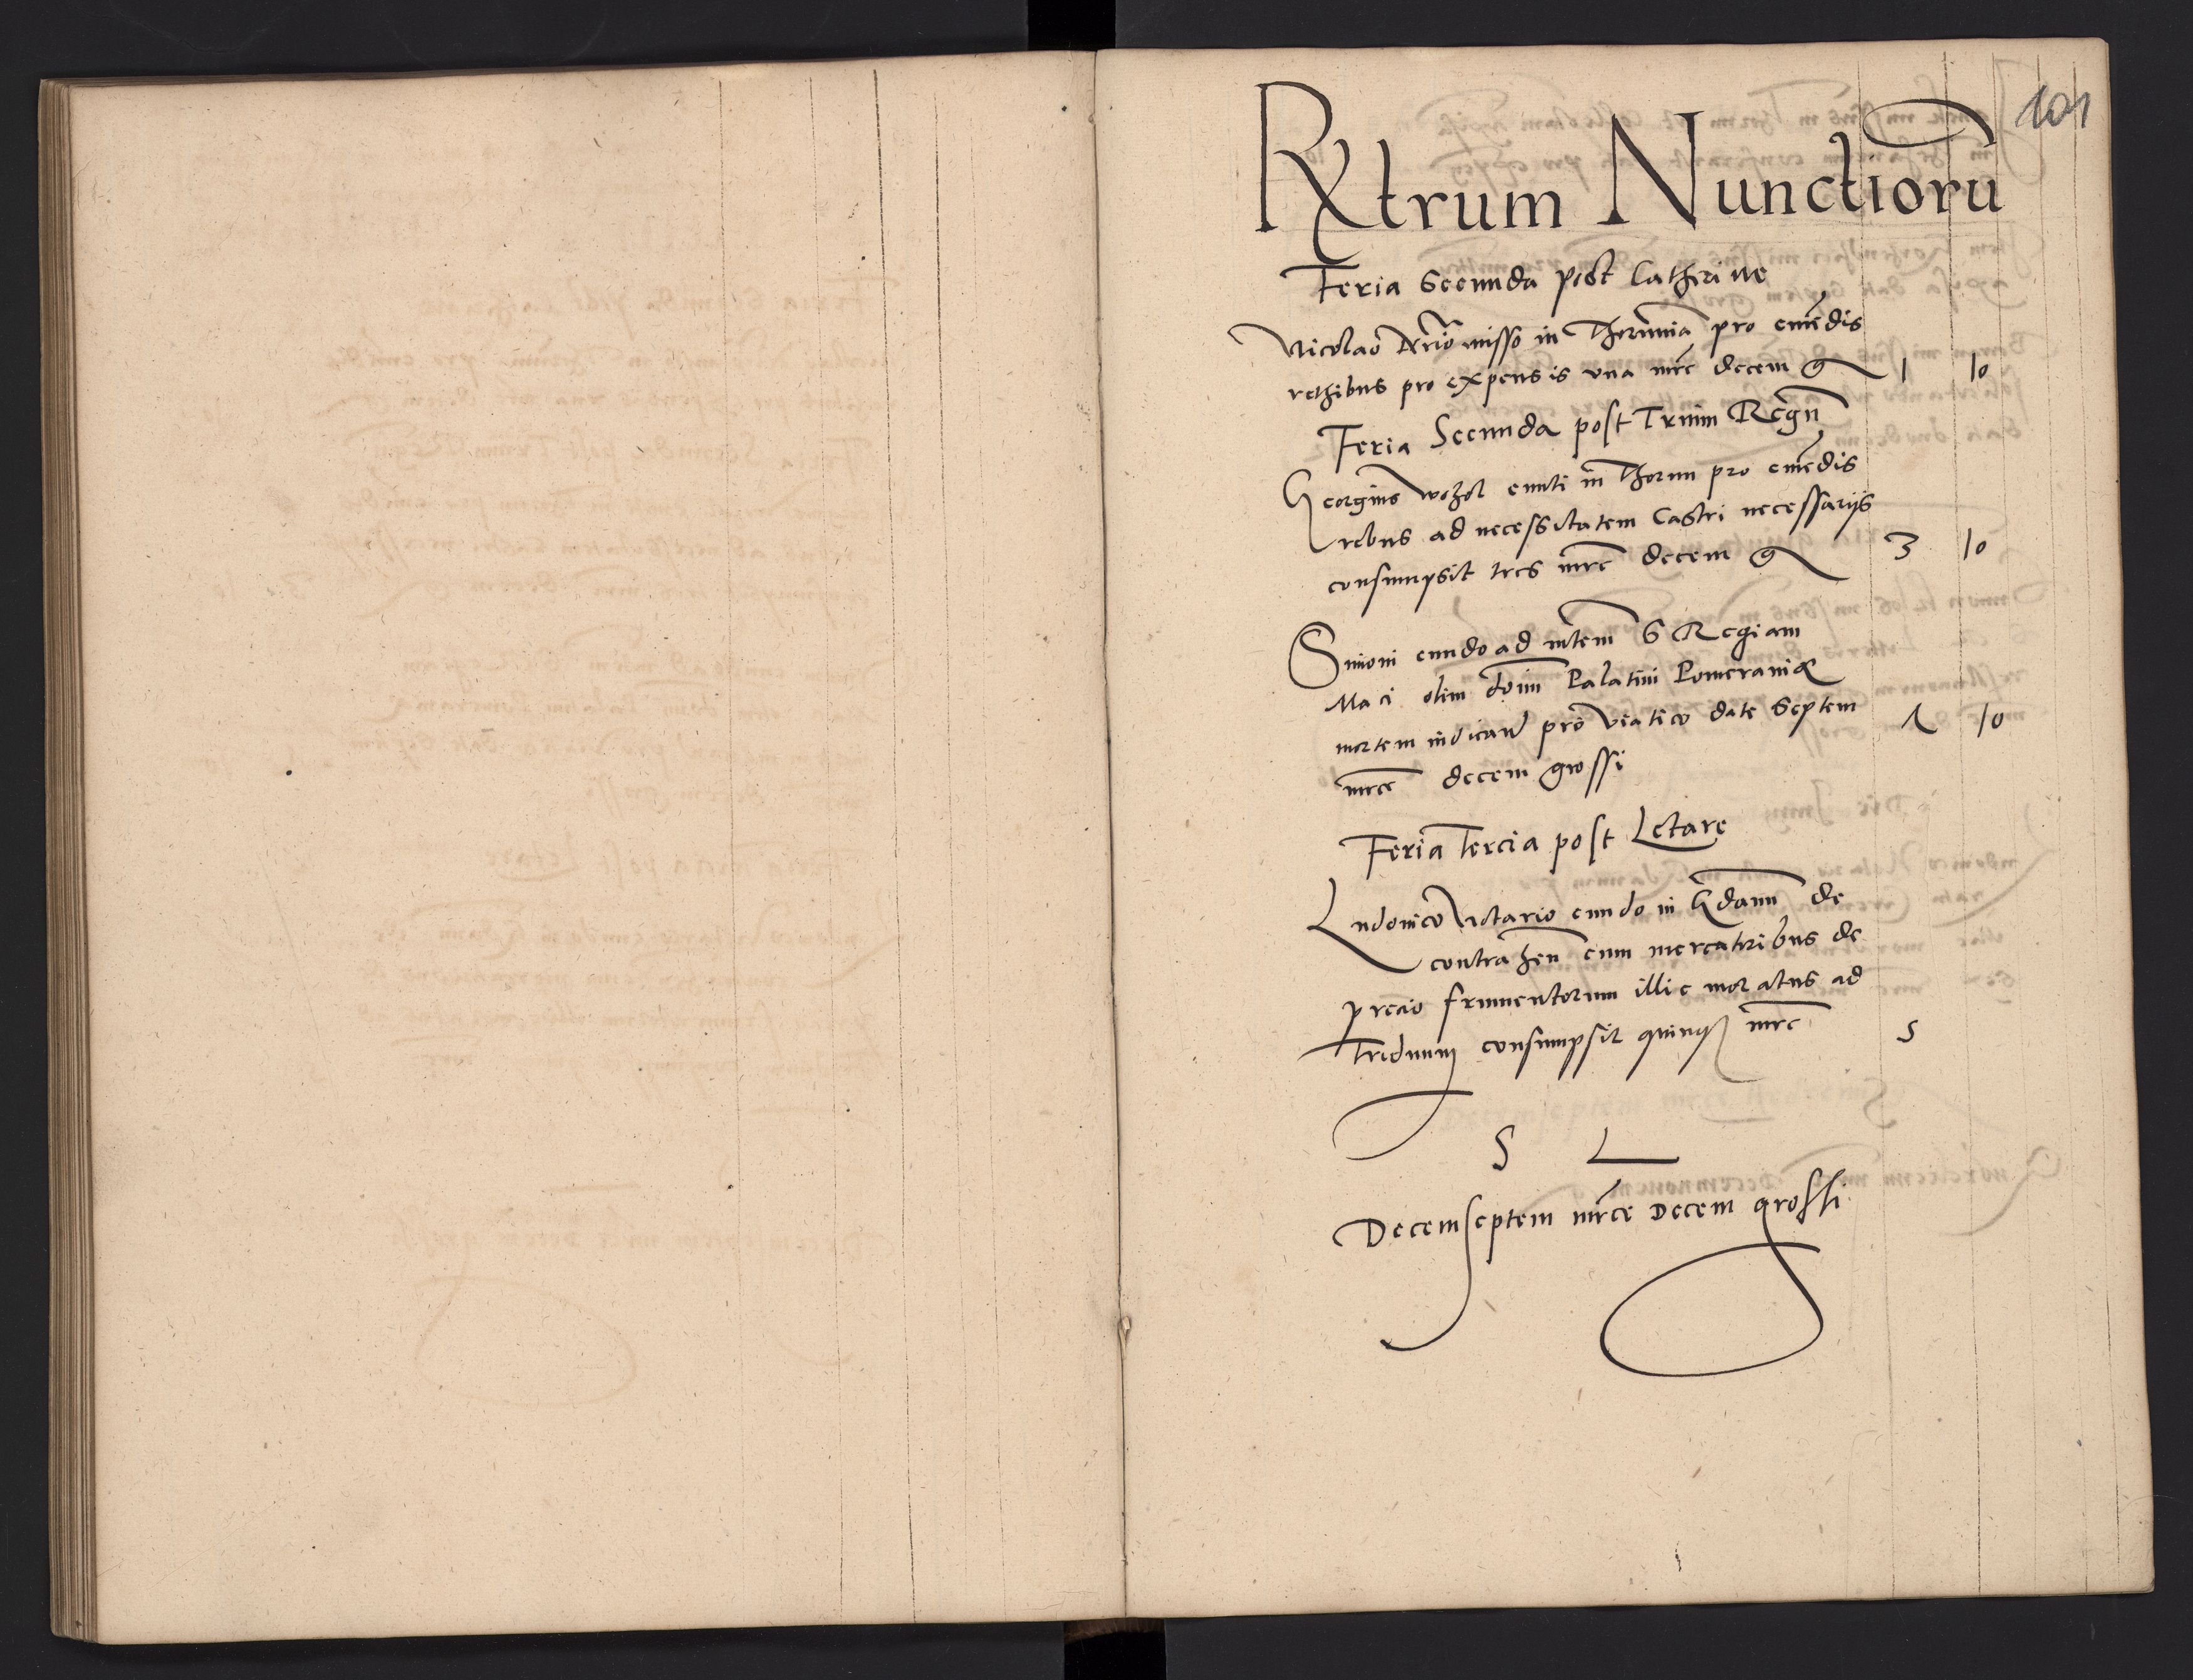 101
Rxtrum Nunctiorū
Feria Secunda post Catherine
Nicolao misso in Thoruniā pro emēdis
rethibus pro expensis una mrc decem g 1 10
Feria Secunda post Trium Regn̄
Georgius wozol eunti in Thorun pro emēdis
rebus ad necessitatem Castri necessarijs
consumpsit tres mrc decem g 3 10
Simoni eundo ad mtem S Regiam
Ma ci olim domi Palatini Pomeraniæ
mortem indicand pro viatico date Septem 7 10
mrce decem grossi
Feria Tercia post Letare
Ludovico Notario eundo in Gdanū de
contrahen cum mercatoribus de
precio frumentorum illic moratus ad
triduum consumpsit quinq mrc 5
S L
Decemseptem mrce Decem grossi